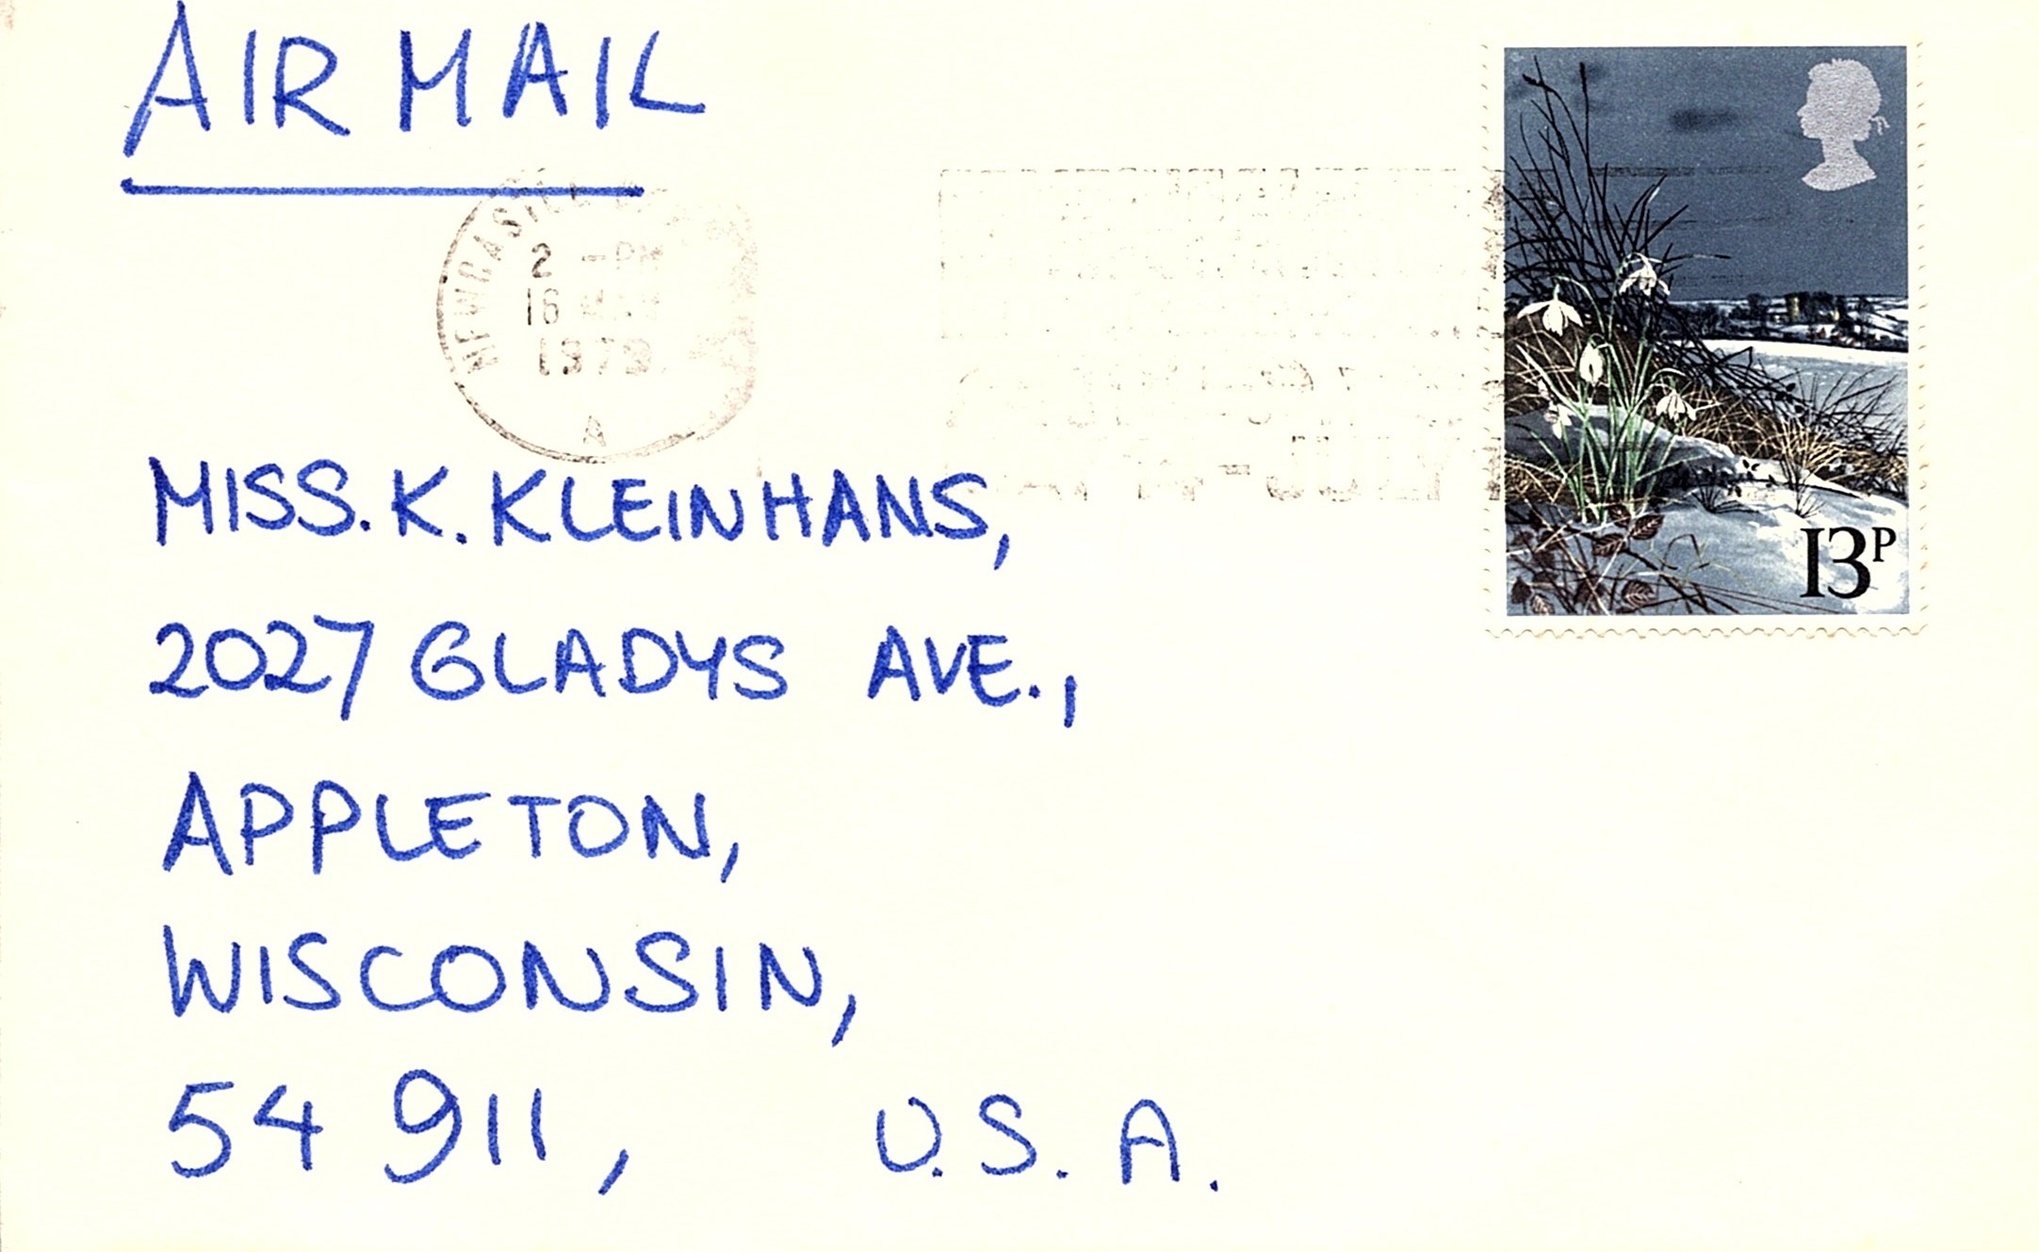 AIR MAIL
13P
NEWCASTLE
2 -PM
16 MAR
1979
A
MISS. K. KLEINHANS,
2027 GLADYS AVE.,
APPLETON,
WISCONSIN,
54 911, U.S.A.